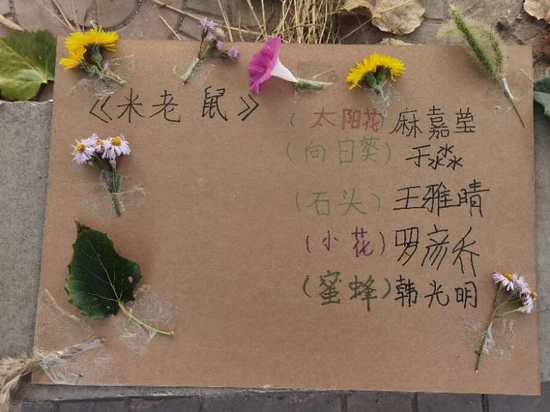 《米老鼠》
(太阳花)麻嘉莹
(向日葵)于淼淼
(石头)王雅晴
(小花)罗彦乔
(蜜蜂)韩光明